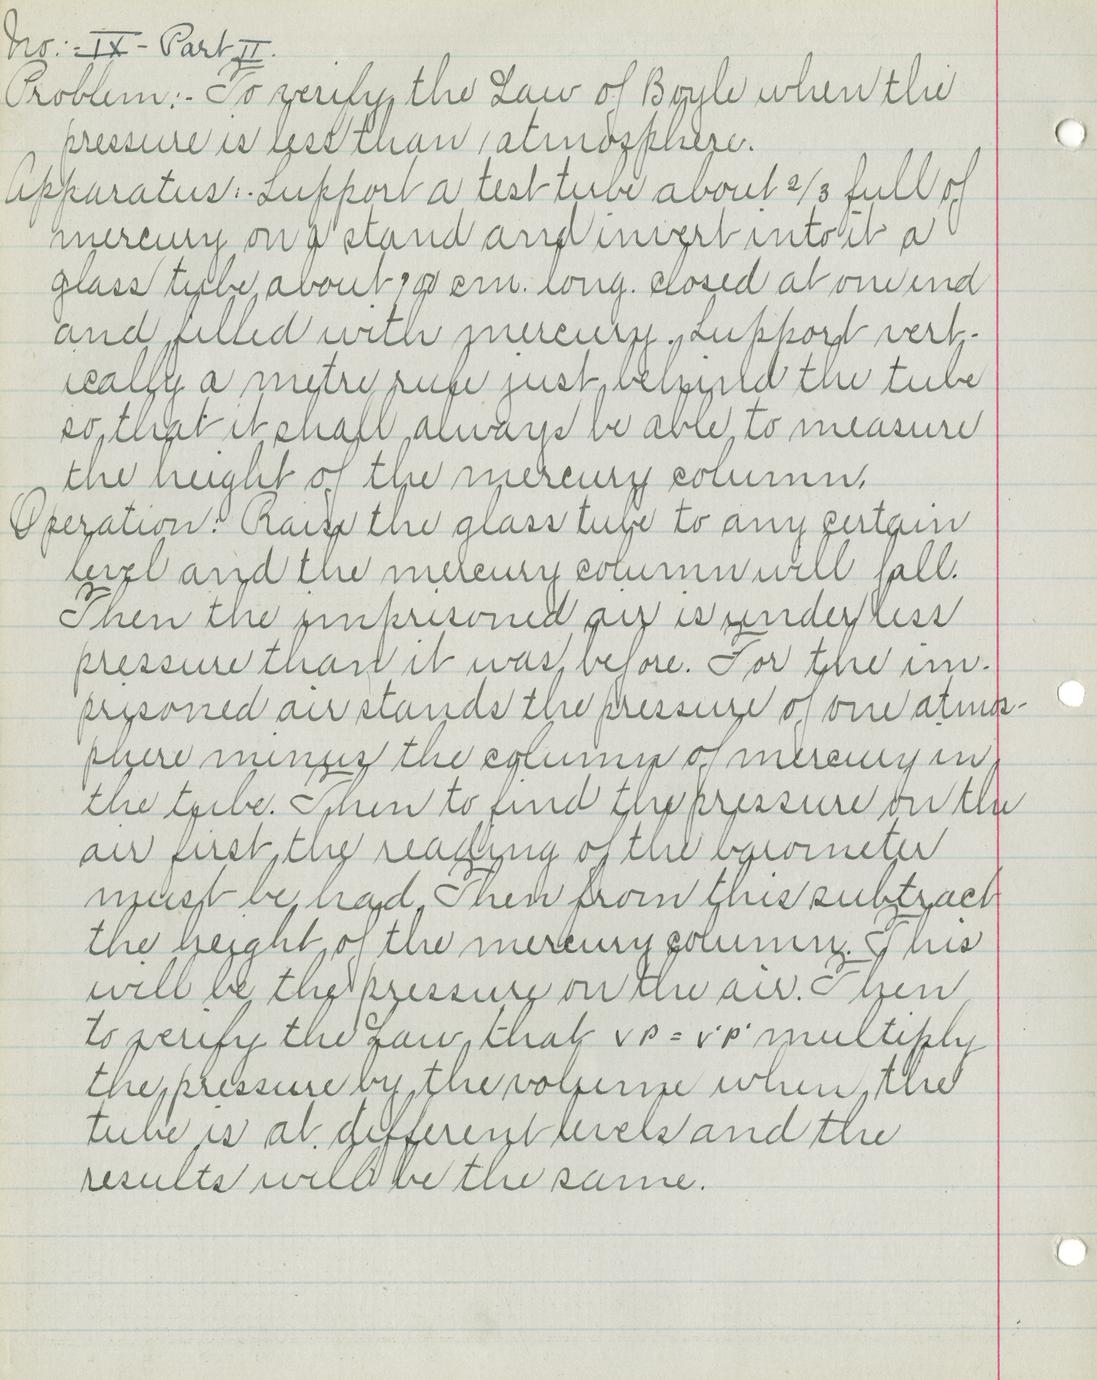 No.:- IX - Part II.
Problem:- To verify the Law of Boyle when the
pressure is less than 1 atmosphere.
Apparatus:- Support a test tube about 2/3 full of
mercury on a stand and invert into it a
glass tube about cm. long. closed at one end
and filled with mercury. Support vert-
ically a metre rule just behind the tube
so that it shall always be able to measure
the height of the mercury column.
Operation:- Raise the glass tube to any certain
level and the mercury column will fall.
Then the imprisoned air is under less
pressure than it was before. For the im-
prisoned air stands the pressure of one atmos-
phere minus the column of mercury in
the tube. Then to find the pressure on the
air first the reading of the barometer
must be had. Then from this subtract
the height of the mercury column. This
will be the pressure on the air. Then
to verify the Law that VP = V'P' multiply
the pressure by the volume when the
tube is at different levels and the
results will be the same.